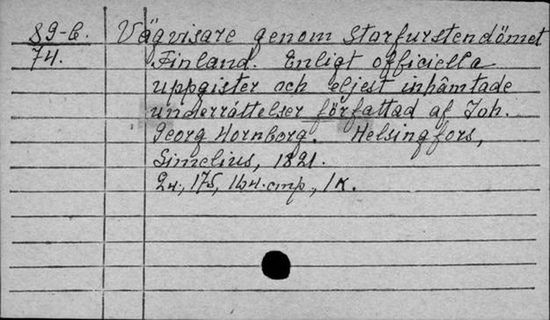 89-6. Vägvisare genom Storfurstendömet
74. Finland. Enligt officiella
uppgister och eljest inhämtade
underrättelser författad af Joh.
Georg Hornborg. Helsingfors,
Simelius, 1821.
24, 175, 164. cmp., 1 K.